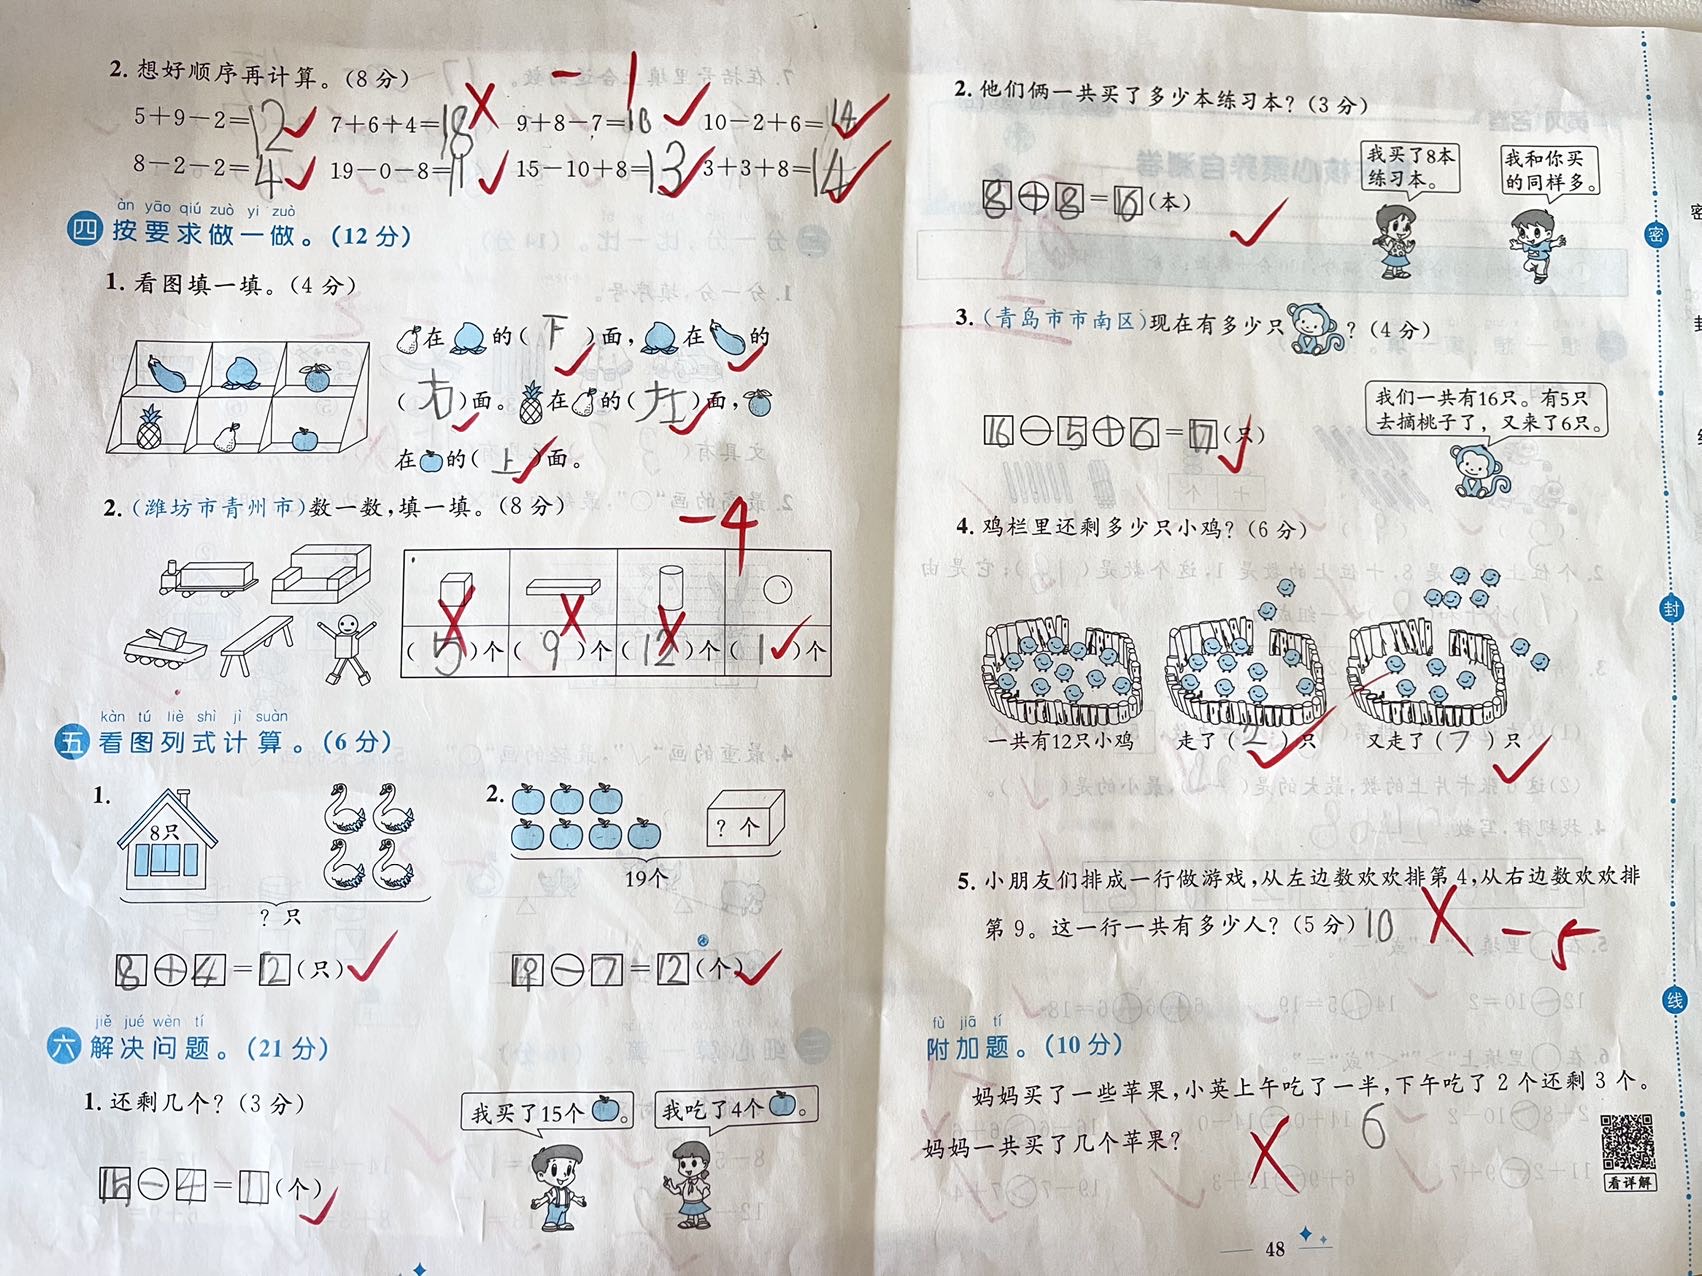 2. 想好顺序再计算。(8 分)
-1
5+9-2=12 7+6+4=18 9+8-7=10 10-2+6=14
8-2-2=4 19-0-8=11 15-10+8=13 3+3+8=14
àn yāo qiú zuò yi zuò
四 按要求做一做。(12 分)
1. 看图填一填。(4 分)
在 的( 下 )面, 在 的
( 右 )面。 在 的( 左 )面,
在 的( 上 )面。
2. (潍坊市青州市)数一数,填一填。(8 分)
-4
( 5 )个 ( 9 )个 ( 12 )个 ( 1 )个
kàn tú liè shì jì suàn
五 看图列式计算。(6 分)
1.
8只
? 只
8+4=12(只)
2.
? 个
19个
19-7=12(个)
jiě jué wèn tí
六 解决问题。(21 分)
1. 还剩几个?(3 分)
我买了15个 。
我吃了4个 。
15-4=11(个)
2. 他们俩一共买了多少本练习本?(3 分)
我买了8本
练习本。
我和你买
的同样多。
8+8=16(本)
3. (青岛市市南区)现在有多少只 ?(4 分)
我们一共有16只。有5只
去摘桃子了，又来了6只。
16-5+6=17(只)
4. 鸡栏里还剩多少只小鸡?(6 分)
一共有12只小鸡 走了( 2 )只 又走了( 7 )只
5. 小朋友们排成一行做游戏,从左边数欢欢排第 4,从右边数欢欢排
第 9。这一行一共有多少人?(5 分) 10 -5
fù jiā tí
附加题。(10 分)
妈妈买了一些苹果,小英上午吃了一半,下午吃了 2 个还剩 3 个。
妈妈一共买了几个苹果? 6
看详解
48
密
封
线